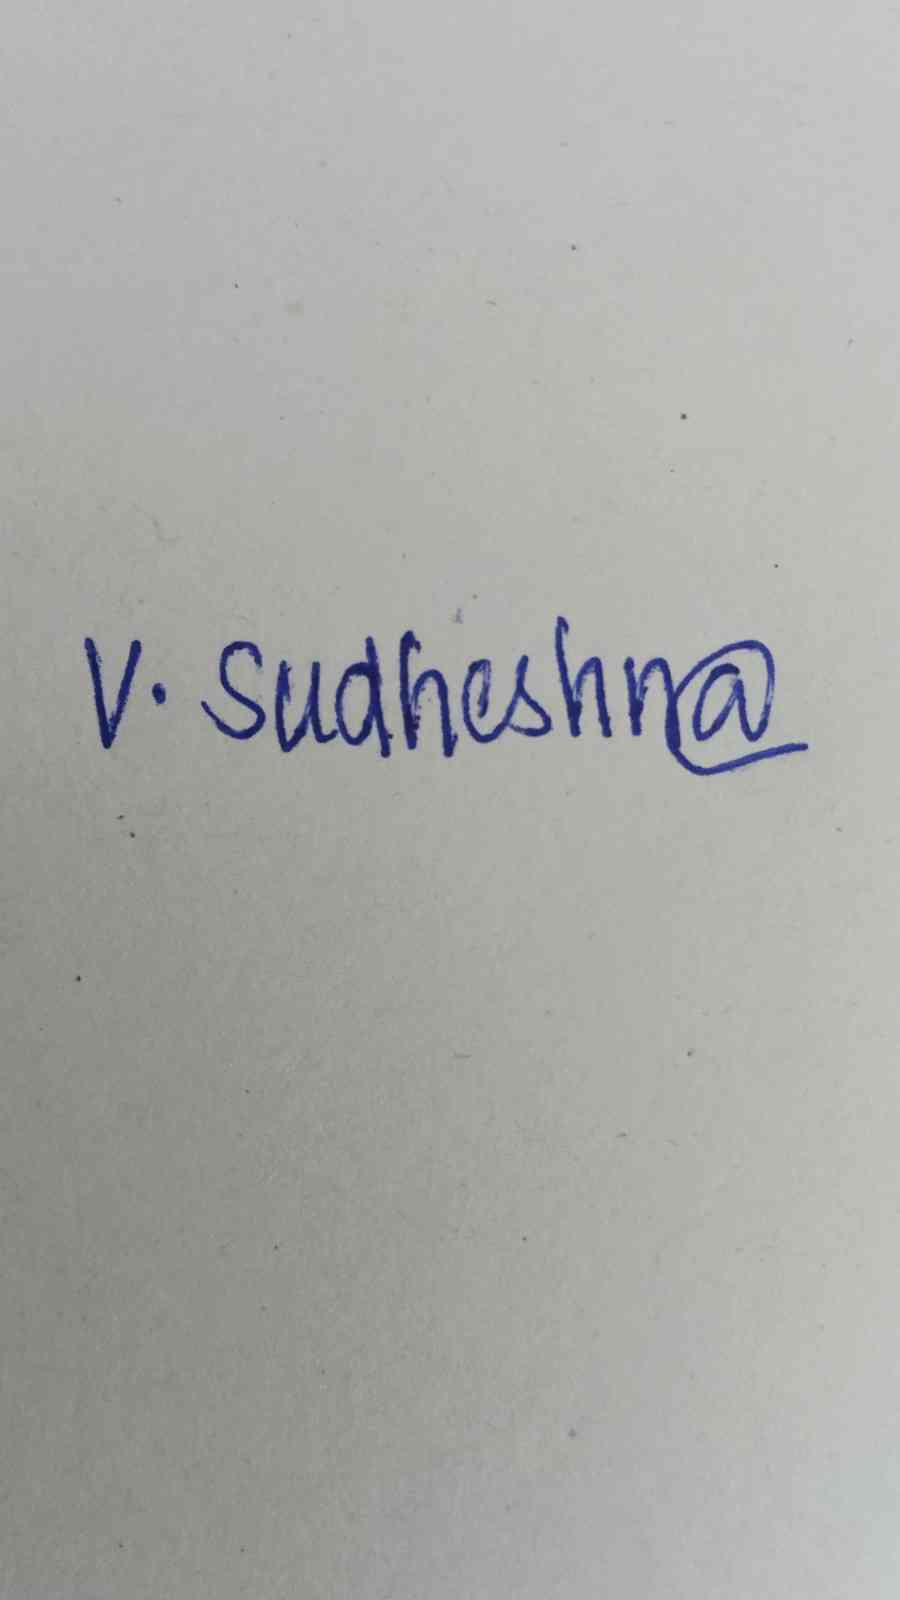 V. Sudheshn@